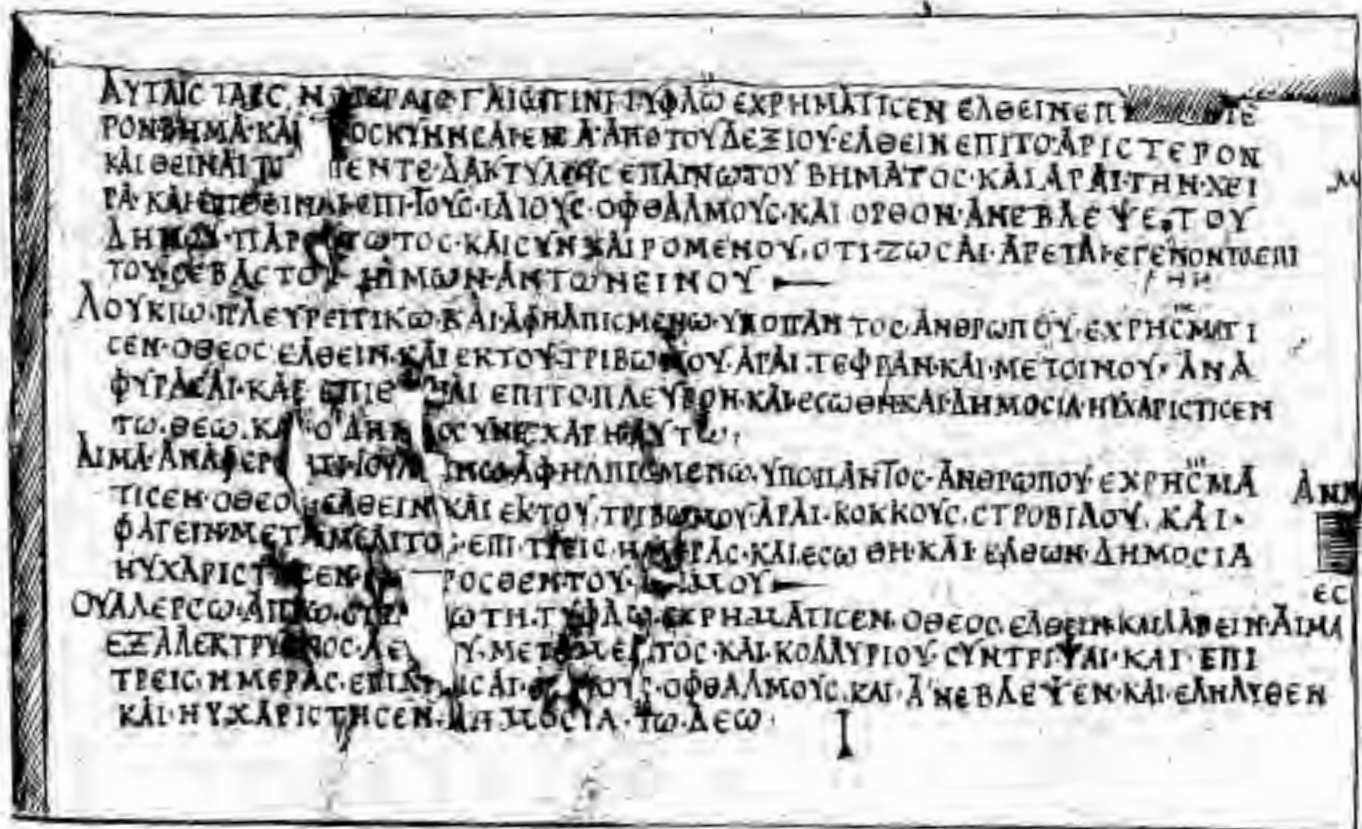 ΑΥΤΑΙC ΤΑΙC ΗΜΕΡΑΙC ΓΑΙΩ ΤΙΝΙ ΤΥΦΛΩ ΕΧΡΗΜΑΤΙCΕΝ ΕΛΘΕΙΝ ΕΠ
ΡΟΝ·ΒΗΜΑ·ΚΑΙ ΑΠΟ ΤΟΥ ΔΕΞΙΟΥ·ΕΛΘΕΙΝ ΕΠΙ ΤΟ·ΑΡΙCΤΕΡΟΝ
ΚΑΙ ΘΕΙΝΑΙ ΠΕΝΤΕ·ΔΑΚΤΥΛΟΥC ΕΠΑΝΩ ΤΟΥ ΒΗΜΑΤΟC·ΚΑΙ ΑΡΑΙ·ΤΗΝ·ΧΕΙ
ΡΑ·ΚΑΙ ΕΠΙΘΕΙΝΑΙ·ΕΠΙ·ΤΟΥC·ΙΔΙΟΥC·ΟΦΘΑΛΜΟΥC·ΚΑΙ ΟΡΘΟΝ·ΑΝΕΒΛΕΨΕ·ΤΟΥ
ΔΗΜΟΥ·ΠΑΡΕCΤΩΤΟC·ΚΑΙ CΥΝΧΑΙΡΟΜΕΝΟΥ·ΟΤΙ·ΖΩCΑΙ·ΑΡΕΤΑΙ·ΕΓΕΝΟΝΤΟ ΕΠΙ
ΤΟΥ·CΕΒΑCΤΟΥ ΗΜΩΝ·ΑΝΤΩΝΕΙΝΟΥ
ΛΟΥΚΙΩ·ΠΛΕΥΡΕΙΤΙΚΩ·ΚΑΙ·ΑΦΗΛΠΙCΜΕΝΩ·ΥΠΟ ΠΑΝΤΟC·ΑΝΘΡΩΠΟΥ·ΕΧΡΗCΜΑΤΙ
CΕΝ·Ο ΘΕΟC ΕΛΘΕΙΝ·ΚΑΙ ΕΚ ΤΟΥ·ΤΡΙΒΩΜΟΥ·ΑΡΑΙ·ΤΕΦΡΑΝ·ΚΑΙ·ΜΕΤ ΟΙΝΟΥ·ΑΝΑ
ΦΥΡΑCΑΙ·ΚΑΙ ΕΠΙ ΤΟ·ΠΛΕΥΡΟΝ·ΚΑΙ·ΕCΩΘΗ·ΚΑΙ·ΔΗΜΟCΙΑ·ΗΥΧΑΡΙCΤΙCΕΝ
ΤΩ·ΘΕΩ·ΚΑΙ Ο ΔΗΜΟC CΥΝΕΧΑΡΗ ΑΥΤΩ·
ΑΙΜΑ·ΑΝΑΦΕΡΟΝΤΙ ΙΟΥΛΙΑΝΩ·ΑΦΗΛΠΙCΜΕΝΩ·ΥΠΟ ΠΑΝΤΟC·ΑΝΘΡΩΠΟΥ·ΕΧΡΗCΜΑ
ΤΙCΕΝ·Ο ΘΕΟC ΕΛΘΕΙΝ ΚΑΙ ΕΚ ΤΟΥ·ΤΡΙΒΩΜΟΥ·ΑΡΑΙ·ΚΟΚΚΟΥC·CΤΡΟΒΙΛΟΥ·ΚΑΙ·
ΦΑΓΕΙΝ·ΜΕΤΑ ΜΕΛΙΤΟC·ΕΠΙ·ΤΡΕΙC·ΗΜΕΡΑC·ΚΑΙ·ΕCΩΘΗ·ΚΑΙ·ΕΛΘΩΝ·ΔΗΜΟCΙΑ
ΗΥΧΑΡΙCΤΗCΕΝ ΤΟΥ
ΟΥΑΛΕΡΙΩ·ΑΠΡΩ CΤΡΑΤΙΩΤΗ·ΤΥΦΛΩ·ΕΧΡΗΜΑΤΙCΕΝ·Ο ΘΕΟC·ΕΛΘΕΙΝ·ΚΑΙ ΛΑΒΕΙΝ·ΑΙΜΑ
ΕΞ ΑΛΕΚΤΡΥΩΝΟC ΜΕΤΑ ΜΕΛΙΤΟC·ΚΑΙ·ΚΟΛΛΥΡΙΟΥ·CΥΝΤΡΙΨΑΙ·ΚΑΙ·ΕΠΙ
ΤΡΕΙC·ΗΜΕΡΑC·ΕΠΙΧΡΕΙCΑΙ ΤΟΥC·ΟΦΘΑΛΜΟΥC·ΚΑΙ·ΑΝΕΒΛΕΨΕΝ·ΚΑΙ·ΕΛΗΛΥΘΕΝ
ΚΑΙ·ΗΥΧΑΡΙCΤΗCΕΝ·ΔΗΜΟCΙΑ·ΤΩ·ΔΕΩ·